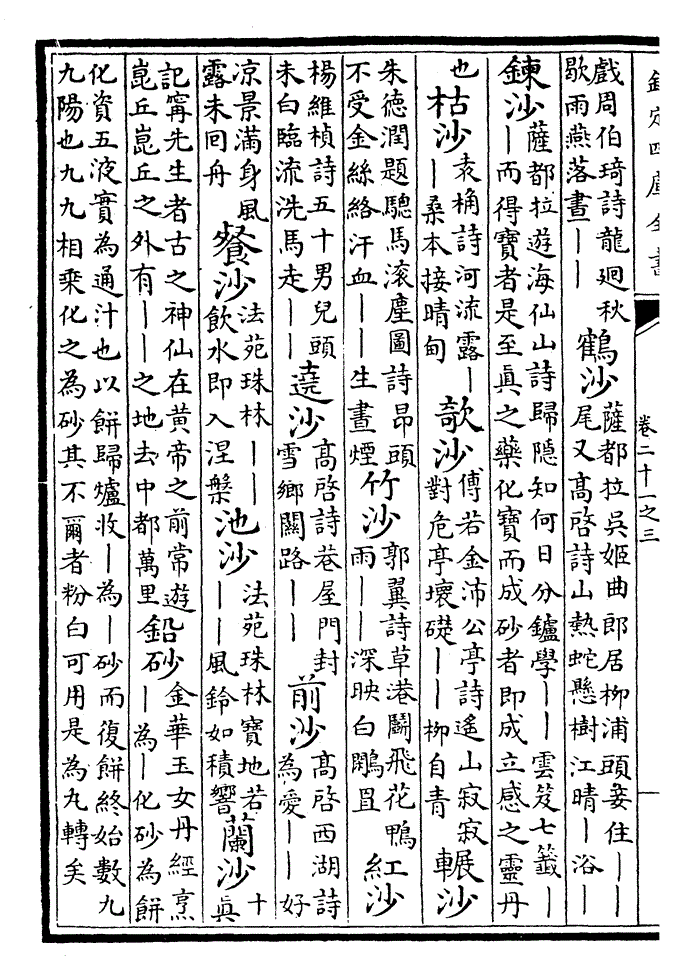 欽定四庫全書
卷二十一之三
戲周伯琦詩龍廻秋
歇雨燕落晝丨丨
鶴沙
薩都拉吳姬曲郎居柳浦頭妾住丨丨
尾又髙啓詩山熱蛇懸樹江晴丨浴丨
鍊沙
薩都拉遊海仙山詩歸隱知何日分鑪學丨丨雲笈七籤丨
丨而得寳者是至真之藥化寳而成砂者即成立感之靈丹
也
枯沙
袁桷詩河流露丨
丨桑本接晴甸
欹沙
傅若金沛公亭詩遙山寂寂
對危亭壞礎丨丨柳自青
輾沙
朱德潤題驄馬滚塵圖詩昂頭
不受金絲絡汗血丨丨生晝煙
竹沙
郭翼詩草港鬭飛花鴨
雨丨丨深映白鷴罝
紅沙
楊維楨詩五十男兒頭
未白臨流洗馬走丨丨
遶沙
髙啓詩巷屋門封
雪鄉關路丨丨
前沙
髙啓西湖詩
為愛丨丨好
凉景滿身風
露未回舟
餐沙
法苑珠林丨丨
飲水即入涅槃
池沙
法苑珠林寳地若
丨丨風鈴如積響
蘭沙
十
真
記甯先生者古之神仙在黄帝之前常遊
崑丘崑丘之外有丨丨之地去中都萬里
鉛砂
金華玉女丹經烹
丨為丨化砂為餅
化資五液實為通汁也以餅歸爐收丨為丨砂而復餅終始數九
九陽也九九相乘化之為砂其不爾者粉白可用是為九轉矣